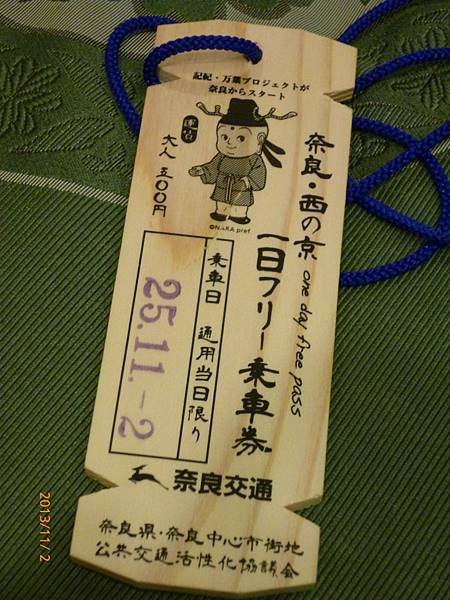 記紀・万葉プロジェクトが
奈良からスタート
奈良・西の京 one day free pass
一日フリー乗車券
大人 五〇〇円
©NARA pref
乗車日 通用当日限り
25.11.-2
奈良交通
奈良県・奈良中心市街地
公共交通活性化協議会
2013/11/2